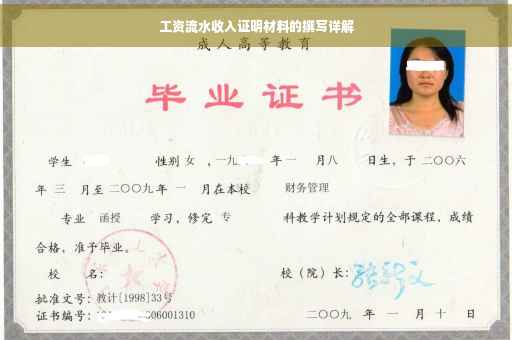 工资流水收入证明材料的撰写详解
成人高等教育
毕业证书
学生 性别 女 ，一九 年 一 月 八 日生，于 二〇〇六
年 三 月至 二〇〇九 年 一 月在本校 财务管理
专业 函授 学习，修完 专 科教学计划规定的全部课程，成绩
合格，准予毕业。
校 名： 校（院）长：
批准文号：教计[1998]33号
证书编号： 06001310 二〇〇九 年 一 月 十 日